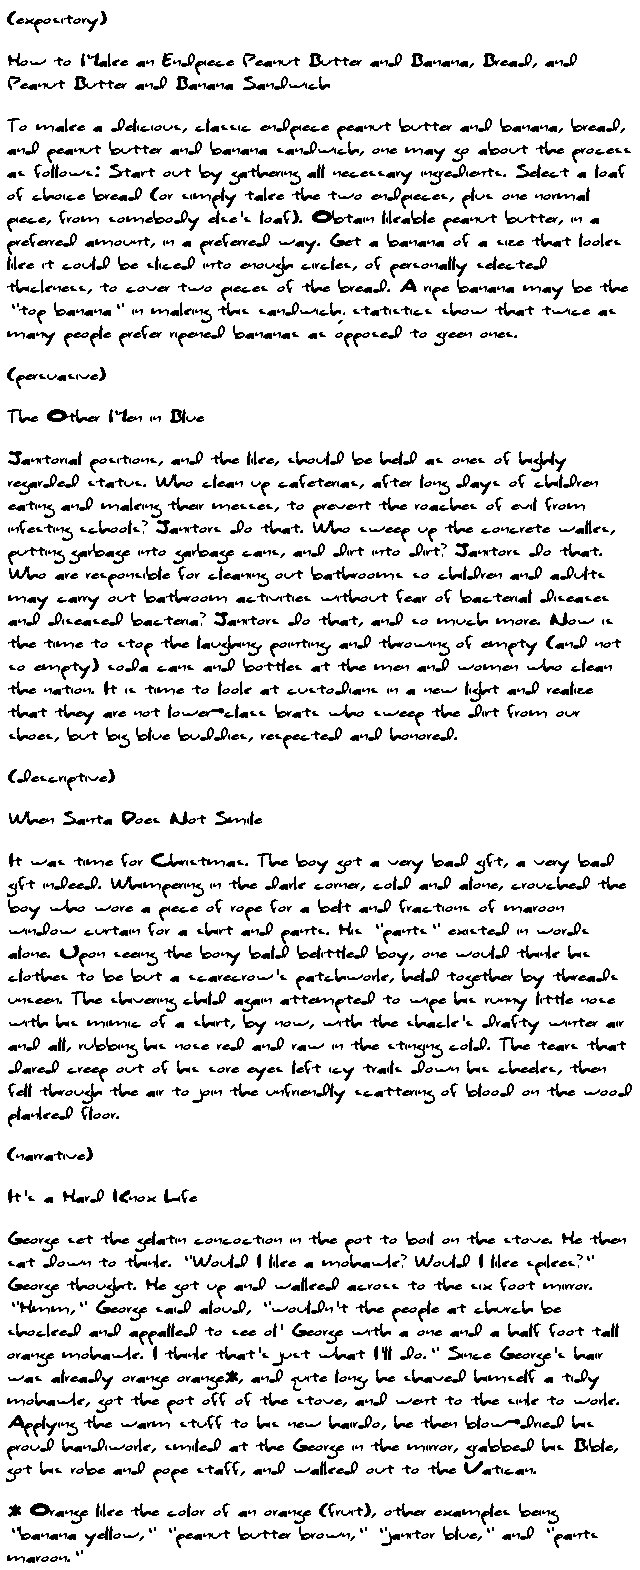 (expository)
How to Make an Endpiece Peanut Butter and Banana, Bread, and
Peanut Butter and Banana Sandwich
To make a delicious, classic endpiece peanut butter and banana, bread,
and peanut butter and banana sandwich, one may go about the process
as follows: Start out by gathering all necessary ingredients. Select a loaf
of choice bread (or simply take the two endpieces, plus one normal
piece, from somebody else's loaf). Obtain likable peanut butter, in a
preferred amount, in a preferred way. Get a banana of a size that looks
like it could be sliced into enough circles, of personally selected
thickness, to cover two pieces of the bread. A ripe banana may be the
"top banana" in making this sandwich; statistics show that twice as
many people prefer ripened bananas as opposed to green ones.
(persuasive)
The Other Men in Blue
Janitorial positions, and the like, should be held as ones of highly
regarded status. Who clean up cafeterias, after long days of children
eating and making their messes, to prevent the roaches of evil from
infesting schools? Janitors do that. Who sweep up the concrete walks,
putting garbage into garbage cans, and dirt into dirt? Janitors do that.
Who are responsible for cleaning out bathrooms so children and adults
may carry out bathroom activities without fear of bacterial diseases
and diseased bacteria? Janitors do that, and so much more. Now is
the time to stop the laughing pointing and throwing of empty (and not
so empty) soda cans and bottles at the men and women who clean
the nation. It is time to look at custodians in a new light and realize
that they are not lower-class brats who sweep the dirt from our
shoes, but big blue buddies, respected and honored.
(descriptive)
When Santa Does Not Smile
It was time for Christmas. The boy got a very bad gift, a very bad
gift indeed. Whimpering in the dark corner, cold and alone, crouched the
boy who wore a piece of rope for a belt and fractions of maroon
window curtain for a shirt and pants. His "pants" existed in words
alone. Upon seeing the bony bald belittled boy, one would think his
clothes to be but a scarecrow's patchwork, held together by threads
unseen. The shivering child again attempted to wipe his runny little nose
with his mimic of a shirt, by now, with the shack's drafty winter air
and all, rubbing his nose red and raw in the stinging cold. The tears that
dared creep out of his sore eyes left icy trails down his cheeks, then
fell through the air to join the unfriendly scattering of blood on the wood
planked floor.
(narrative)
It's a Hard Knox Life
George set the gelatin concoction in the pot to boil on the stove. He then
sat down to think. "Would I like a mohawk? Would I like spikes?"
George thought. He got up and walked across to the six foot mirror.
"Hmm," George said aloud, "wouldn't the people at church be
shocked and appalled to see ol' George with a one and a half foot tall
orange mohawk. I think that's just what I'll do." Since George's hair
was already orange orange*, and quite long, he shaved himself a tidy
mohawk, got the pot off of the stove, and went to the sink to work.
Applying the warm stuff to his new hairdo, he then blow-dried his
proud handiwork, smiled at the George in the mirror, grabbed his Bible,
got his robe and pope staff, and walked out to the Vatican.
* Orange like the color of an orange (fruit), other examples being
"banana yellow," "peanut butter brown," "janitor blue," and "pants
maroon."